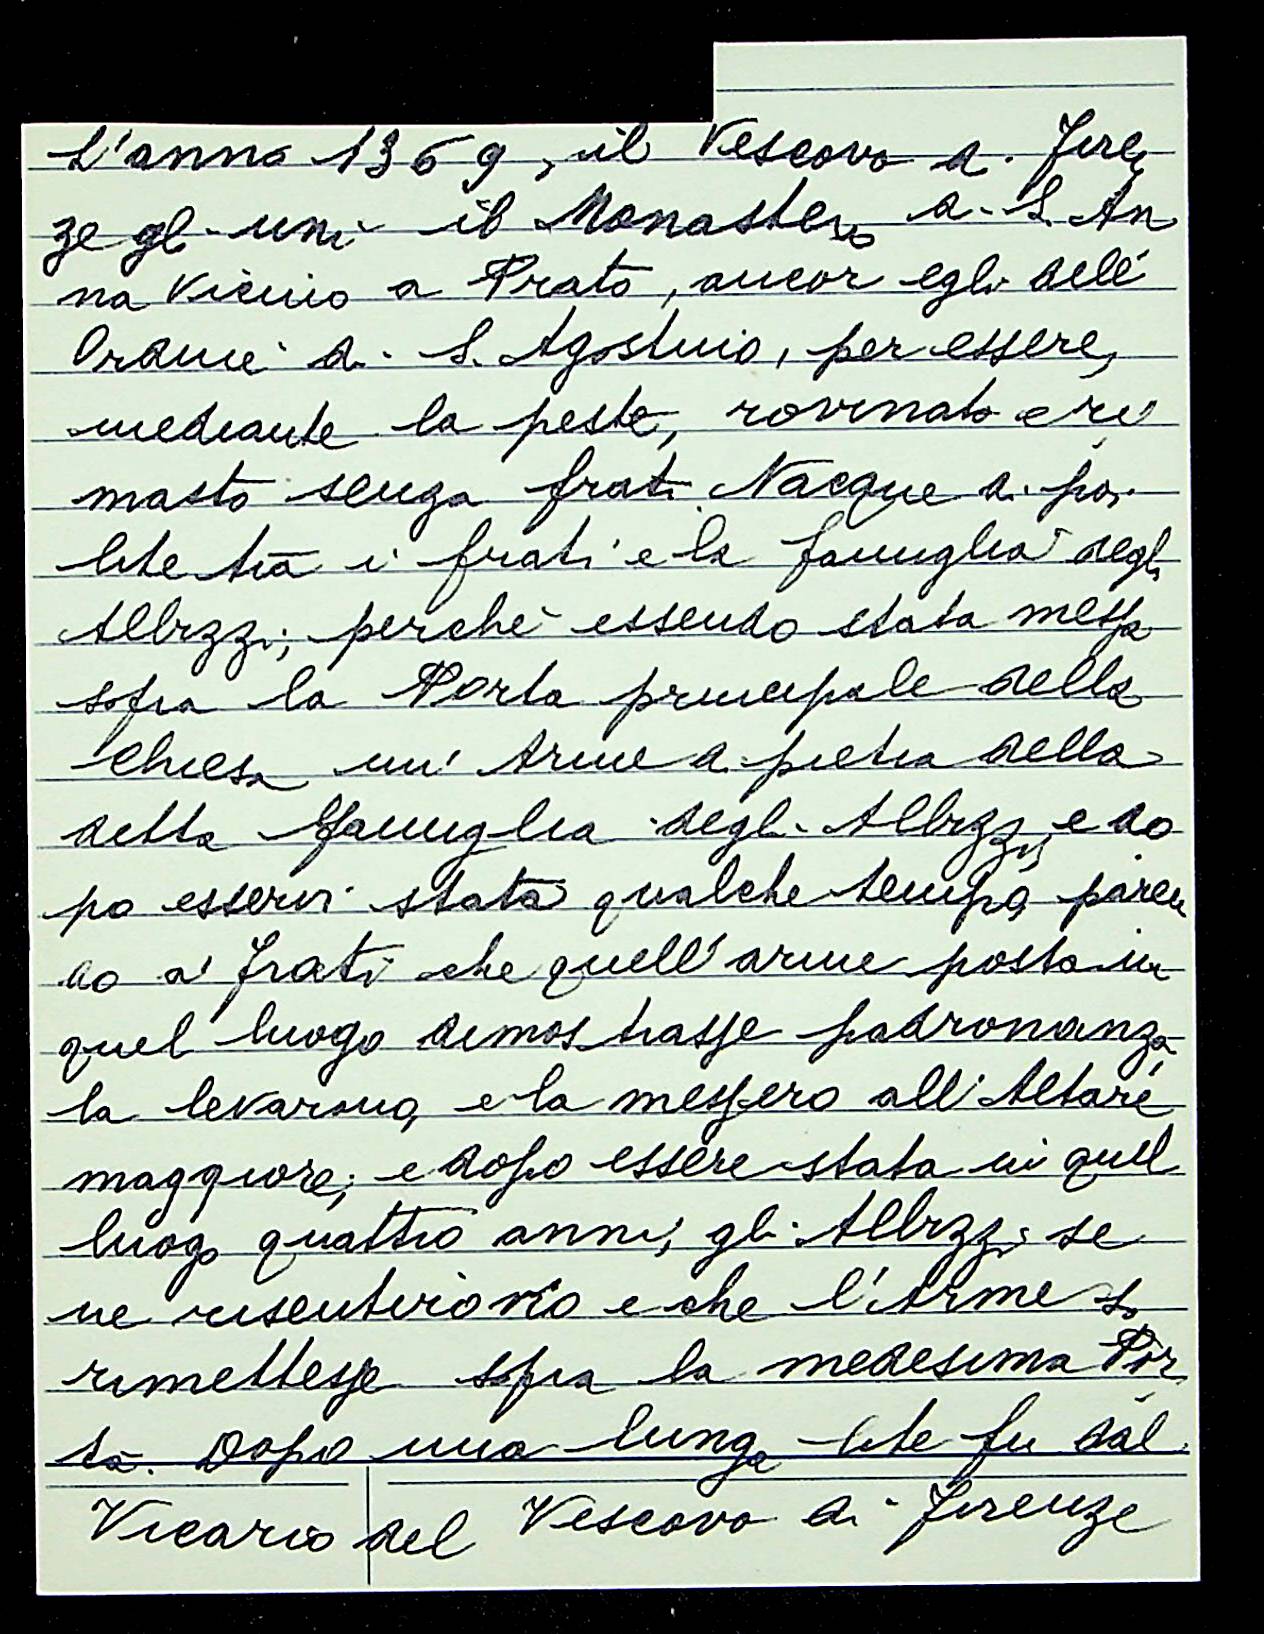 L'anno 1369, il Vescovo di Firen
ze gli unì il Monastero di S. An
na vicino a Prato, ancor egli dell'
Ordine di S. Agostino, per essere,
mediante la peste, rovinato e ri
masto senza frati. Nacque di poi
lite trà i frati e la famiglia degli
Albizzi; perchè essendo stata messa
sopra la Porta principale della
Chiesa un' Arme di pietra della
detta Famiglia degli Albizzi, e do
po esservi stata qualche tempo, paren
do a' Frati che quell'arme posta in
quel luogo dimostrasse padronanza,
la levarono, e la messero all'Altare
maggiore; e dopo essere stata in quel
luogo quattro anni, gli Albizzi se
ne risentirono e che l'Arme si
rimettesse sopra la medesima Por
ta. Dopo una lunga lite fu dal
Vicario del Vescovo di Firenze